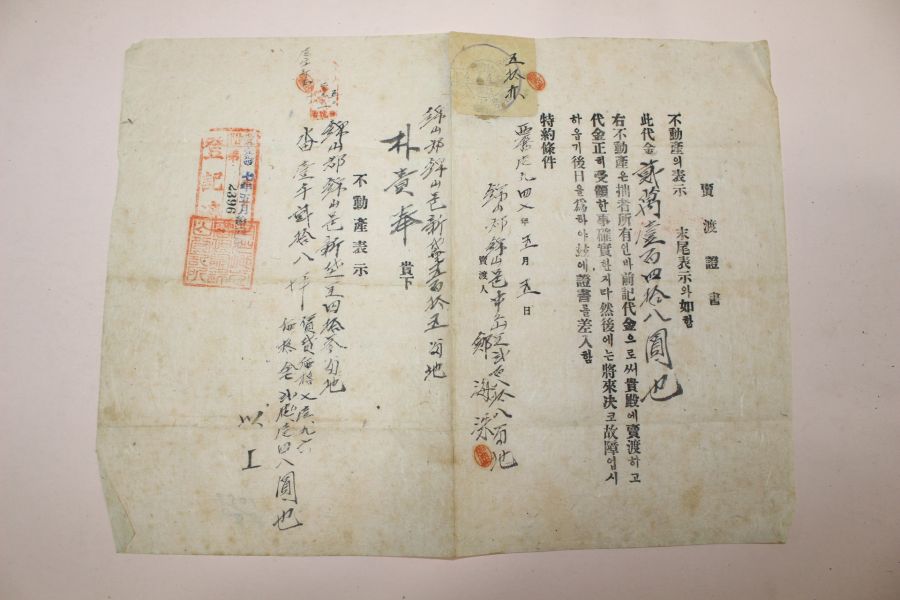 賣渡證書
不動産의表示 末尾表示와如함
此代金貳萬壹百四拾八圓也
右不動産은拙者所有인바前記代金으로써貴殿에賣渡하고
代金正히受領한事確實한지라然後에는將來決코故障업시
하옵기後日을爲하야玆에證書를差入함
特約條件
西曆一九四七年五月五日
錦山郡錦山邑中島里 拾八番地
賣渡人 鄭海
五拾
錦山郡錦山邑新垈里 百拾五番地
朴責奉 貴下
不動産表示
錦山郡錦山邑新垈里四拾參番地
畓壹千貳拾八坪
賃貸價格七壹九六
價格金貳萬壹四八圓也
以上
登記
2396